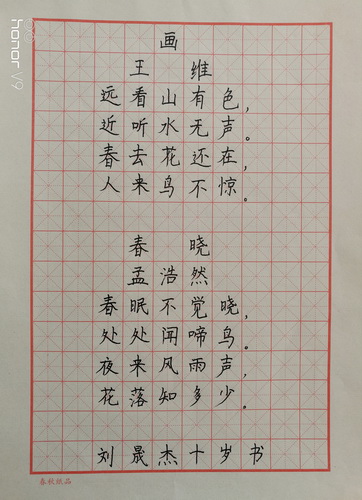 honor V9
画
王 维
远看山有色，
近听水无声。
春去花还在，
人来鸟不惊。
春 晓
孟浩然
春眠不觉晓，
处处闻啼鸟。
夜来风雨声，
花落知多少。
刘晟杰十岁书
春秋纸品